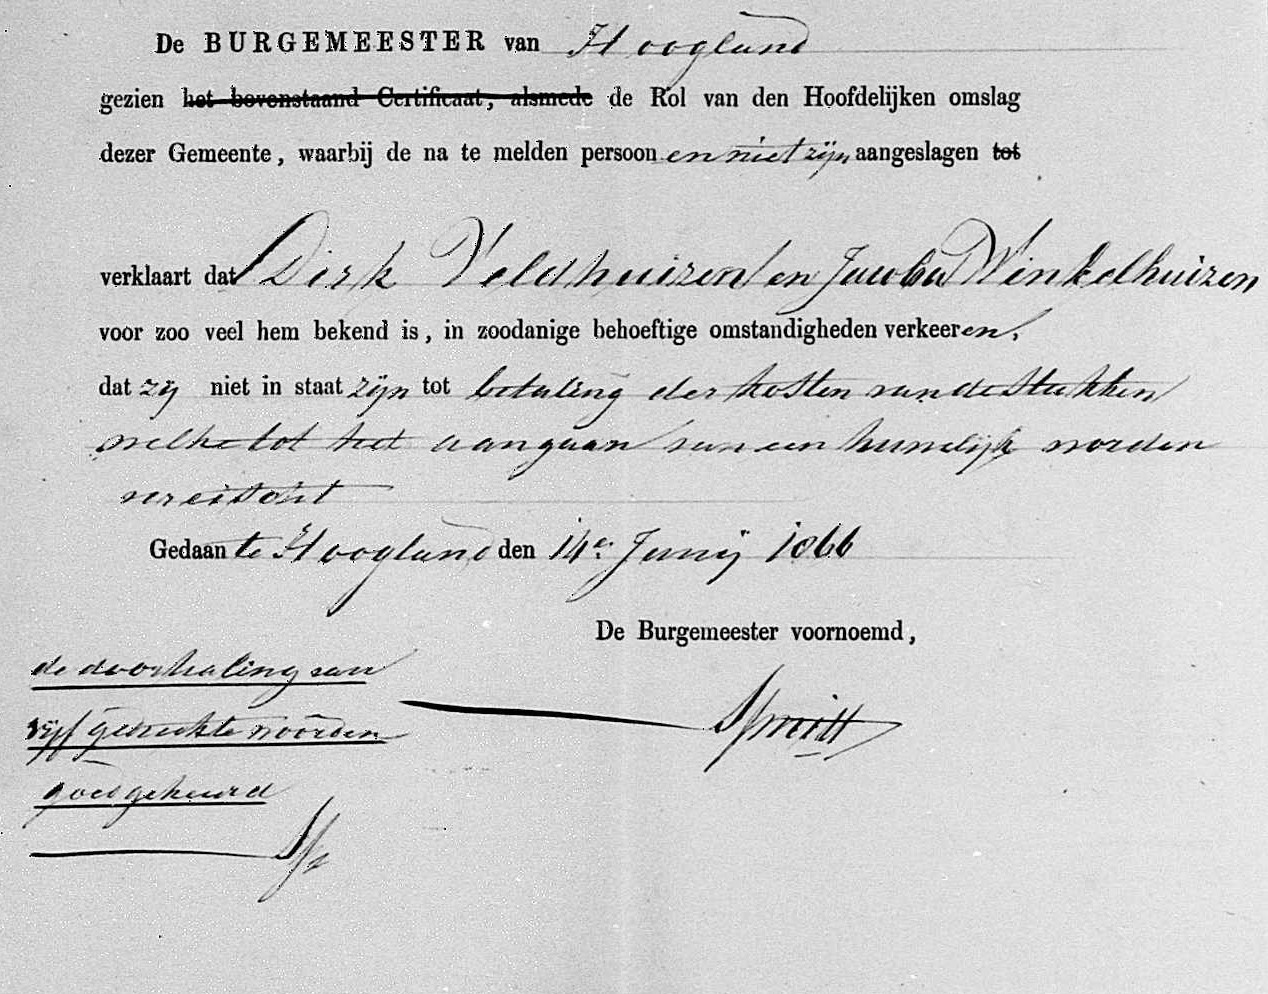 De BURGEMEESTER van Hoogland
gezien het bovenstaand Certificaat, alsmede de Rol van den Hoofdelijken omslag
dezer Gemeente, waarbij de na te melden persoon en niet zijn aangeslagen tot
verklaart dat Dirk Veldhuizen en Jacoba Winkelhuizen
voor zoo veel hem bekend is, in zoodanige behoeftige omstandigheden verkeeren,
dat zij niet in staat zijn tot betaling der kosten van de stukken
welke tot het aangaan van een huwelijk worden
vereischt
Gedaan te Hoogland den 14e Junij 1866
De Burgemeester voornoemd,
de doorhaling van
vijf gedrukte woorden
goedgekeurd